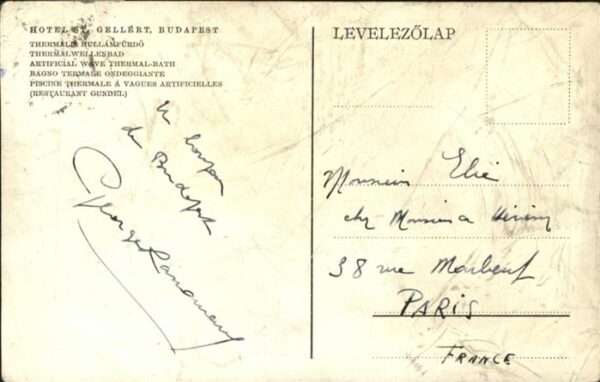 HOTEL ST. GELLÉRT, BUDAPEST
THERMÁLIS HULLÁMFÜRDŐ
THERMALWELLENBAD
ARTIFICIAL WAVE THERMAL-BATH
BAGNO TERMALE ONDEGGIANTE
PISCINE THERMALE Á VAGUES ARTIFICIELLES
(RESTAURANT GUNDEL)
de Budapest
George
LEVELEZŐLAP
Monsieur Elie
chez Monsieur
38 rue Marbeuf
PARIS
FRANCE